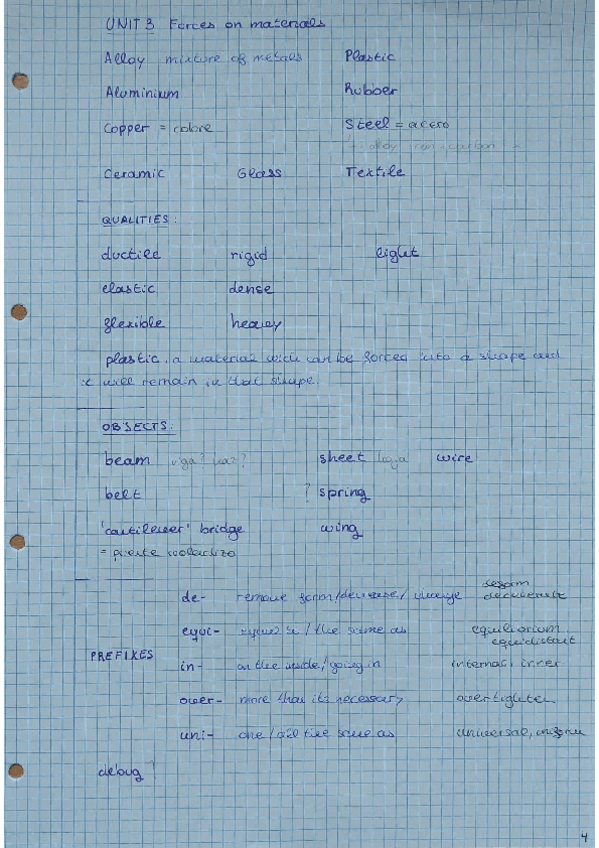 UNIT 3 Forces on materials
Alloy mixture of metals Plastic
Aluminium Rubber
Copper = cobre Steel = acero
alloy iron, carbon
Ceramic Glass Textile
QUALITIES:
ductile rigid light
elastic dense
flexible heavy
plastic, a material wich can be forced into a shape and
it will remain in that shape.
OBJECTS:
beam viga? haz? sheet hoja wire
belt ? spring
'cantilever' bridge wing
= puente voladizo
de- remove form/decrease/change
equi- the same as equilibrium
equidistant
PREFIXES in- on the inside/going in internal, inner
over- more than its necessary overtighten
uni- one/all the same as universal,
debug
4